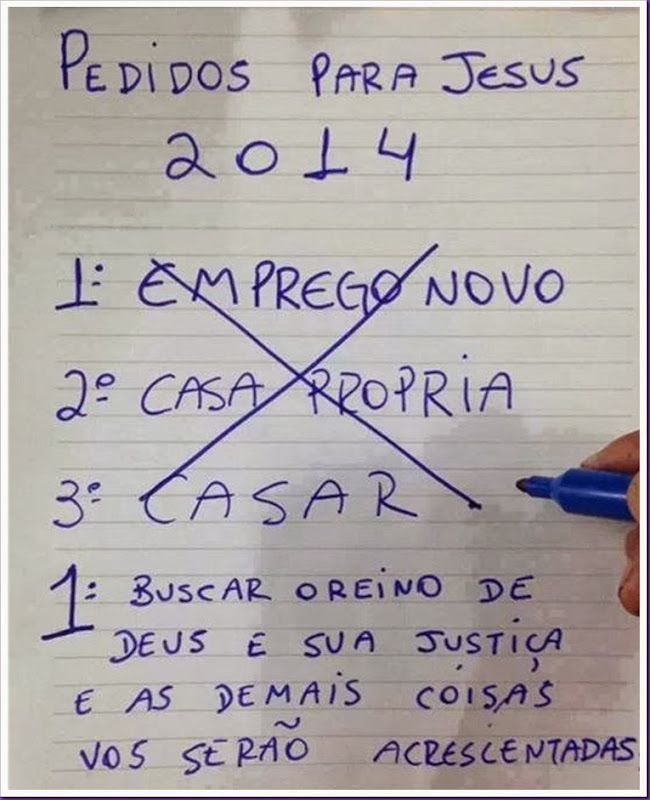 PEDIDOS PARA JESUS
2014
1º EMPREGO NOVO
2º CASA PROPRIA
3º CASAR
1º BUSCAR O REINO DE
DEUS E SUA JUSTIÇA
E AS DEMAIS COISAS
VOS SERÃO ACRESCENTADAS